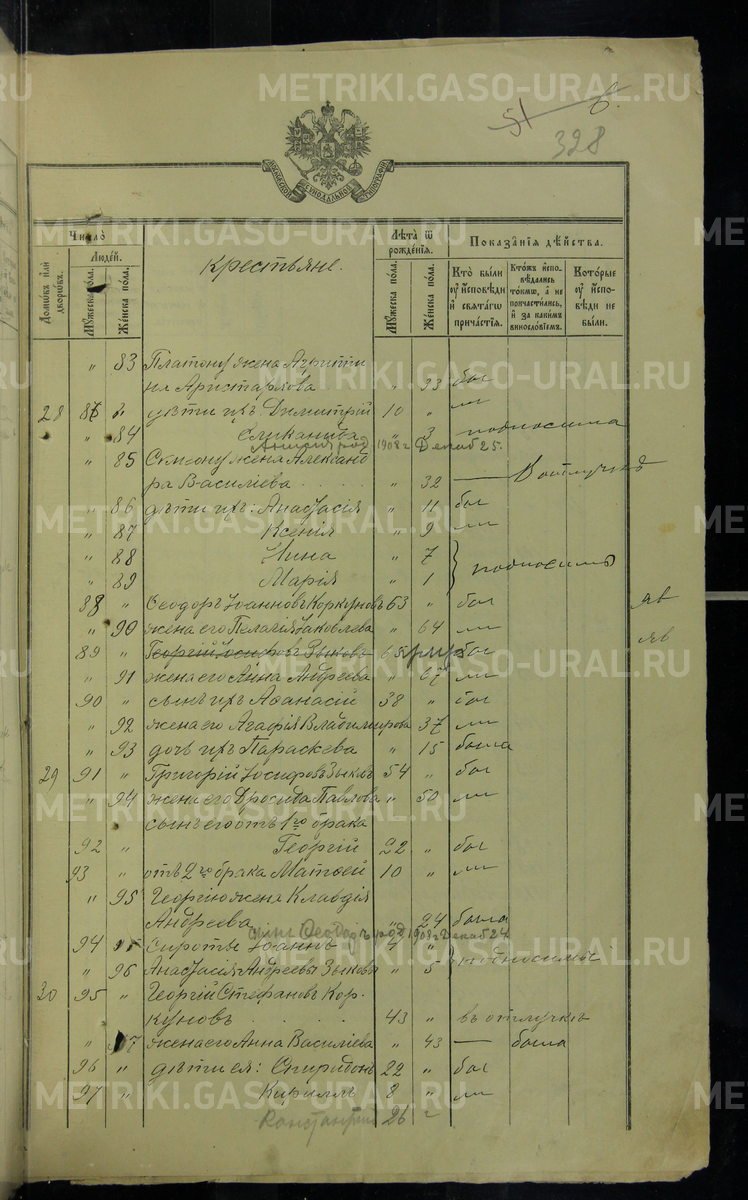 METRIKI.GASO-URAL.RU
328
Число̀
Домѡ́въ и҆лѝ дворѡ́въ.
Людей.
Мꙋжеска по́ла.
Же́нска по́ла.
Крестьяне.
Лѣ́та ѿ рожде́нїя.
Мꙋжеска по́ла.
Же́нска по́ла.
Показа́нїя дѣ́йства.
Кто̀ бы́ли ᲂу҆ и҆сповѣди и҆ свята́гѡ прича́стїя.
Кто́жъ и҆сповѣ́дались то́кмѡ, а҆ не причасти́лись, и҆ за каки́мъ винослО́вїемъ.
Кото́рые ᲂу҆ и҆спо́вѣди не бы́ли.
" 83 Платону жена Агриппи
на Аристархова " 33 был
28 " дѣти ихъ Димитрій 10 "
" 84 " 3 подносима
род 1908 г Декаб 25.
" 85 жена Александ
ра Василіева " 32 — В отлучкѣ
" 86 дѣти ихъ: Анастасія " 11 был
" 87 Ксенія " 9
" 88 Нина " 7
" 89 Марія " 1 подносимы
88 " Ѳеодоръ Іоанновъ Коркуновъ 63 " был
" 90 жена его Пелагія Іаковлева " 64
89 " Георгій Іосифовъ Зыковъ 65 был
" 91 жена его Анна Андреева " 67
90 " сынъ ихъ Аѳанасій 38 " был
" 92 жена его Агафія Владимирова " 37
" 93 дочь ихъ Параскева " 15 была
29 91 " Григорій Іосифовъ Зыковъ 54 " был
" 94 жена его Дросида Павлова " 50
сынъ его отъ 1го брака
92 " Георгій 22 " был
93 " отъ 2го брака Матѳей 10 "
" 95 Георгію жена Клавдія
Андреева " 24 была
Ѳеодоръ род 1908 г Декаб 24
94 " Сироты Іоаннъ "
" 96 Анастасія Андреевы Зыковы " 5 подносимы
30 95 " Георгій Стефановъ Кор-
куновъ 43 " въ отлучкѣ
" жена его Анна Василіева " 43 — была
96 " дѣти ея: Спиридонъ 22 " был
97 " Кириллъ 8 "
Константин 26